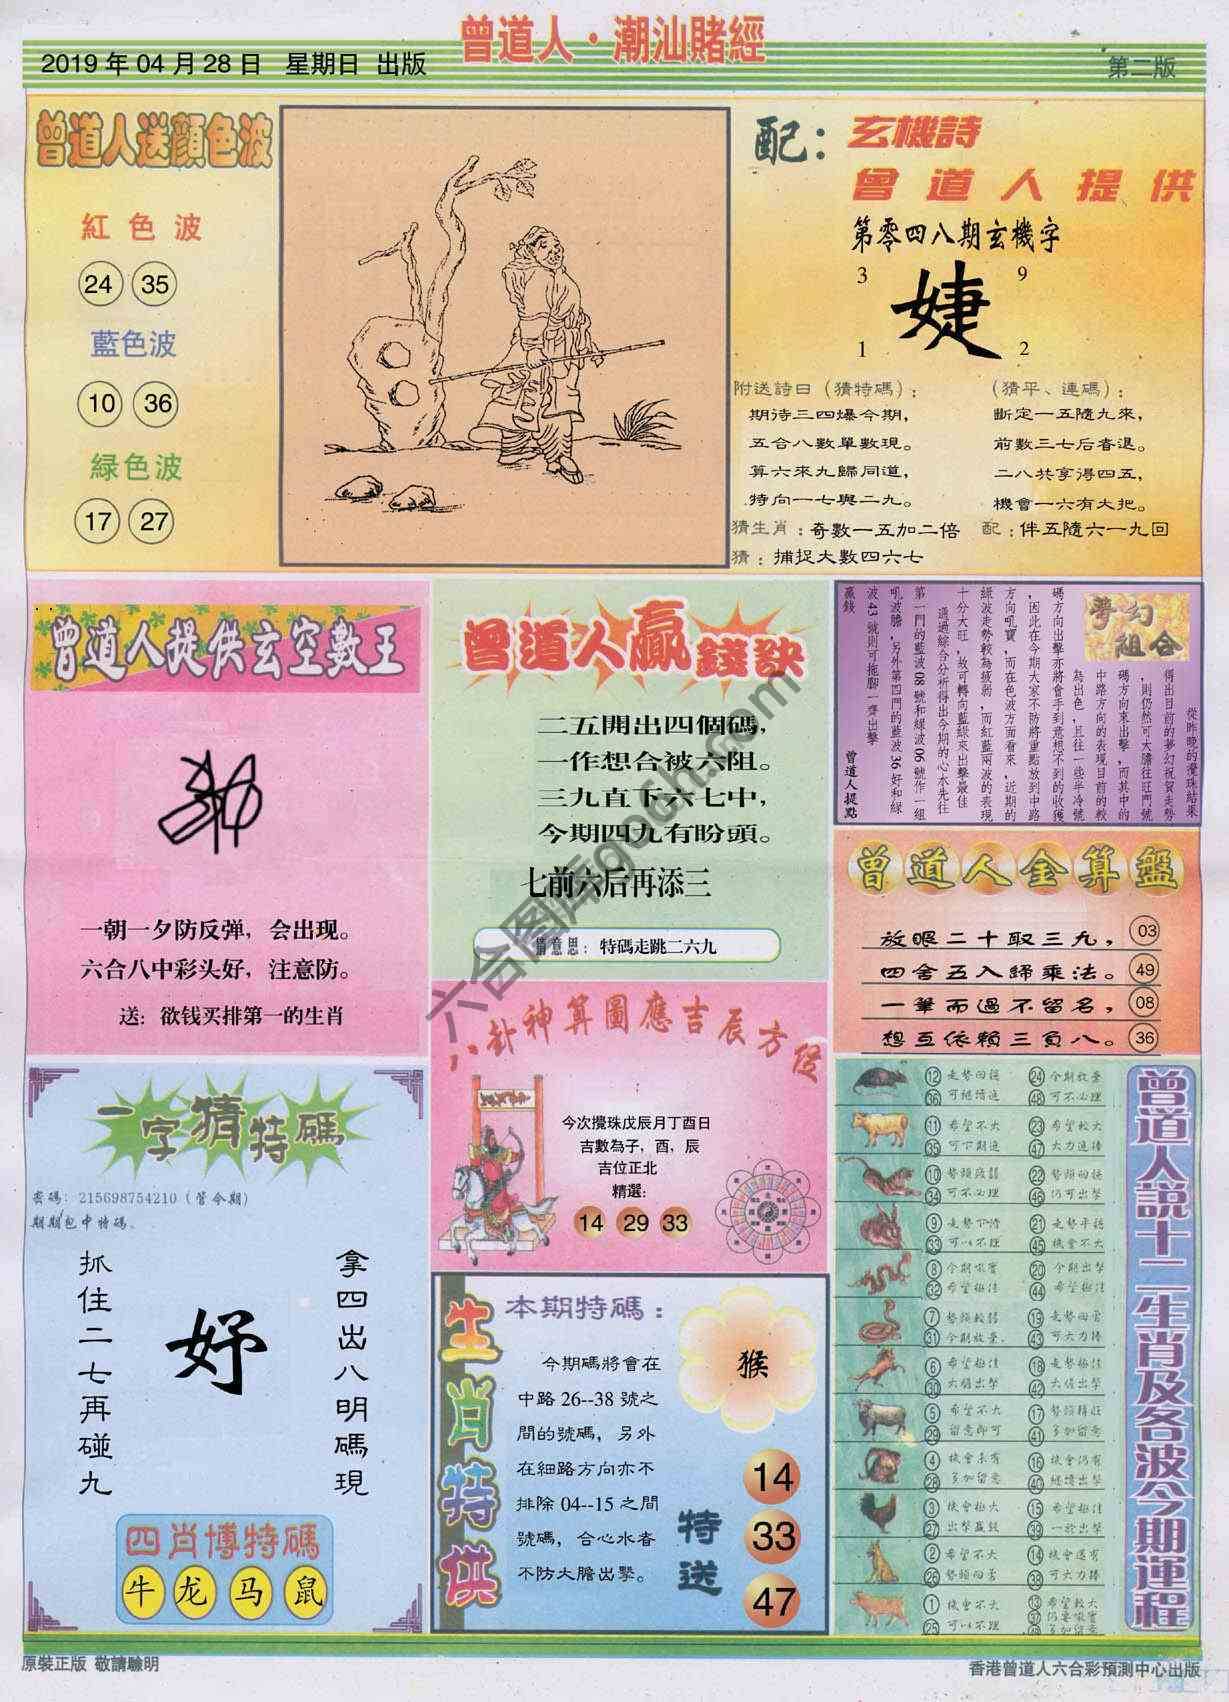 曾道人·潮汕賭經
2019 年 04 月 28 日 星期日 出版
第二版
曾道人送顏色波
紅色波
24 35
藍色波
10 36
緑色波
17 27
配：
玄機詩
曾道人提供
第零四八期玄機字
3 9
婕
1 2
附送詩曰（猜特碼）：
期待三四爆今期，
五合八數單數現。
算六來九歸同道，
特向一七與二九。
猜生肖：奇數一五加二倍
猜：捕捉大數四六七
（猜平、連碼）：
斷定一五隨九來，
前數三七后者退。
二八共享得四五，
機會一六有大把。
配：伴五隨六一九回
曾道人提供玄空數王
一朝一夕防反弹，会出现。
六合八中彩头好，注意防。
送：欲钱买排第一的生肖
曾道人贏錢訣
二五開出四個碼，
一作想合被六阻。
三九直下六七中，
今期四九有盼頭。
七前六后再添三
猜意思：特碼走跳二六九
夢幻組合
從昨晚的攪珠結果
得出目前的夢幻祝賀走勢
，則仍然可大膽往旺門號
碼方向來出擊，而其中的
中路方向的表現目前的較
為出色，且往一些半冷號
碼方向出擊亦將會手到意想不到的收獲
，因此在今期大家不防將重點放到中路
方向吼寶，而在色波方面看來，近期的
綠波走勢較為疲弱，而紅藍兩波的表現
十分大旺，故可轉向藍綠來出擊最佳
通過綜合分析得出今期的心水先往
第一門的藍波 08 號和綠波 06 號作一組
吼波膽，另外第四門的藍波 36 好和綠
波 43 號則可拖腳一齊出擊
贏錢
曾道人提點
曾道人金算盤
放眼二十取三九， 03
四舍五入歸乘法。 49
一筆而過不留名， 08
想互依賴三負八。 36
八卦神算圖應吉辰方位
今次攪珠戊辰月丁酉日
吉數為子，酉，辰
吉位正北
精選：
14 29 33
一字猜特碼
密碼：215698754210（管今期）
期期包中特碼。
拿四出八明碼現
妤
抓住二七再碰九
四肖博特碼
牛 龙 马 鼠
生肖特供
本期特碼：
猴
今期碼將會在
中路 26--38 號之
間的號碼，另外
在細路方向亦不
排除 04--15 之間
號碼，合心水者
不防大膽出擊。
特送
14
33
47
曾道人說十二生肖及各波今期運程
12 36 走勢回穩 可繼續進 24 48 今期放棄 可不必理
11 35 希望不大 可下期進 23 47 希望較大 大力進捧
10 34 勢頭疲弱 可不必理 22 46 勢頭回穩 仍可出擊
9 33 走勢下滑 可以不理 21 45 走勢平穩 機會不大
8 32 今期吼寶 希望極佳 20 44 今期出擊 希望極佳
7 31 勢頭較弱 今期放棄 19 43 走勢回雷 可大力捧
6 30 希望極佳 大膽出擊 18 42 走勢極佳 大膽出擊
5 29 希望不大 留意即可 17 41 勢頭轉旺 多加留意
4 28 機會未有 多加留意 16 40 機會仍有 繼續出擊
3 27 機會極大 出擊贏錢 15 39 希望極佳 一於出擊
2 26 希望不大 勢頭回雷 14 38 機會還有 可大力捧
1 25 機會不大 可以不理 13 37 49 希望較大 仍要吼寶 多加留意
六合图库gocn.com
原裝正版 敬請驗明
香港曾道人六合彩預測中心出版